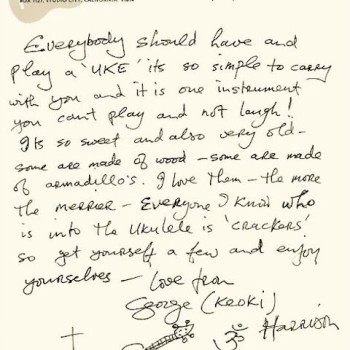 Everybody should have and
play a 'UKE' its so simple to carry
with you and it is one instrument
you cant play and not laugh!
Its so sweet and also very old-
some are made of wood - some are made
of armadillo's. I love them - the more
the merrier - Everyone I know who
is into the ukulele is 'crackers'
so get yourself a few and enjoy
yourselves - Love from
George (Keoki)
ॐ Harrison